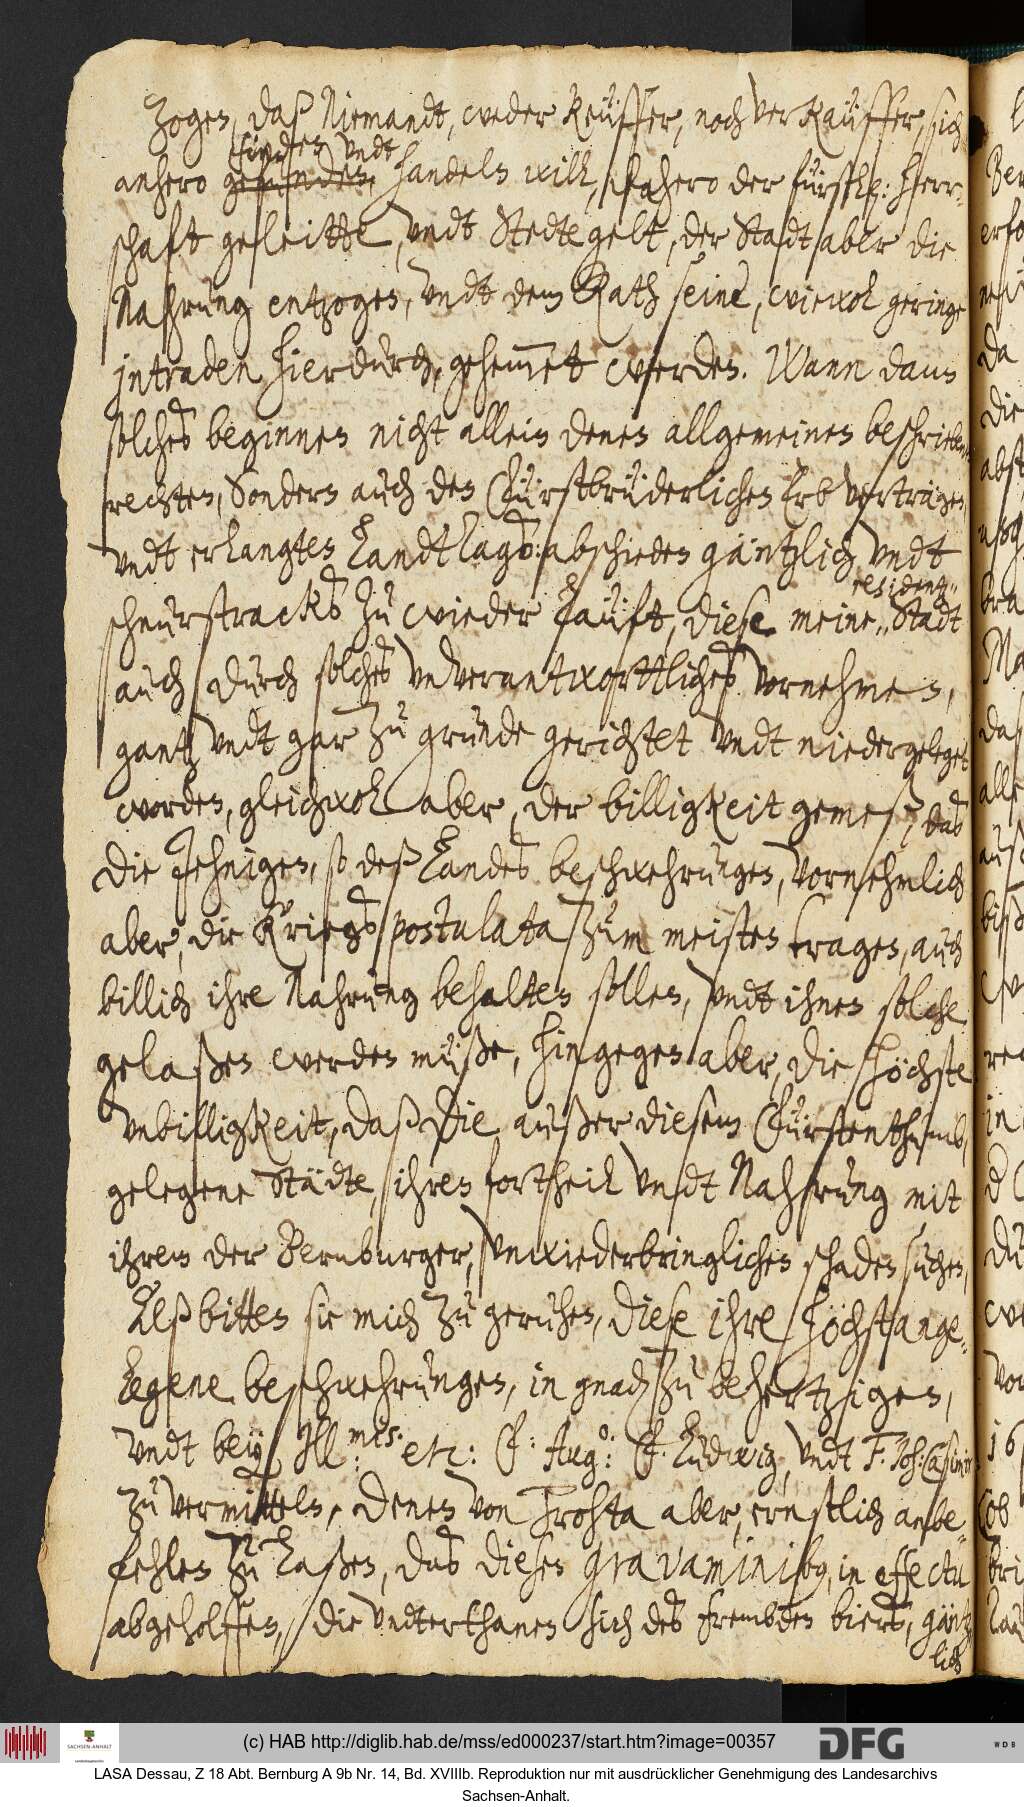 zogen, daß Niemandt, weder Keüffer, noch verKaüffer, sich
anhero finden vndt handeln will, dahero der fürstl: herr-
schaft geleitte, vndt Stedtegelt, der Stadt aber die
Nahrung entzogen, vndt dem Rath seine, wiewol geringe
jntraden hierdurch, gehem̅et werden. Wann dann
solches beginnen nicht allein denen allgemeinen beschriebenen
rechten, Sondern auch den Fürstbrüderlichen Erb verträgen,
vndt erlangten Landt Tags: abschieden gäntzlich vndt
schnurstracks zu wieder laüft, diese meine residentz Stadt
auch durch solches vnverantwortliches vornehmen,
gantz vndt gar zu grunde gerichtet vndt niedergeleget
worden, gleichwol aber, der billigkeit gemeß, das
die Jehnigen, so deß Landes beschwehrungen, vornehmlich
aber, die Kriegs postulata zum meisten tragen, auch
billich ihre Nahrung behalten sollen, vndt ihnen solche
gelaßen werden müße, hingegen aber, die höchste
vnbilligkeit, daß die außer diesem Fürstenthumb,
gelegene Städte, ihren fortheil vndt Nahrung mit
ihrem der Bernburger, vnwiederbringlichen schaden suchen,
Alß bitten sie mich zu geruhen, diese ihre höchstange-
legene beschwehrungen, in gnad zu behertzigen,
vndt bey Ill:mis. etc: F: Aug: F. Ludwig, vndt F. Joh: Casimir
zu vermitteln, denen von Trohta aber, ernstlich anbe-
fehlen zu laßen, das diesen gravaminibus, in effectu
abgeholffen, die vndterthanen sich des frembden biers, gäntz-
lich
(c) HAB http://diglib.hab.de/mss/ed000237/start.htm?image=00357
DFG
WDB
SACHSEN-ANHALT
LASA Dessau, Z 18 Abt. Bernburg A 9b Nr. 14, Bd. XVIIIb. Reproduktion nur mit ausdrücklicher Genehmigung des Landesarchivs
Sachsen-Anhalt.